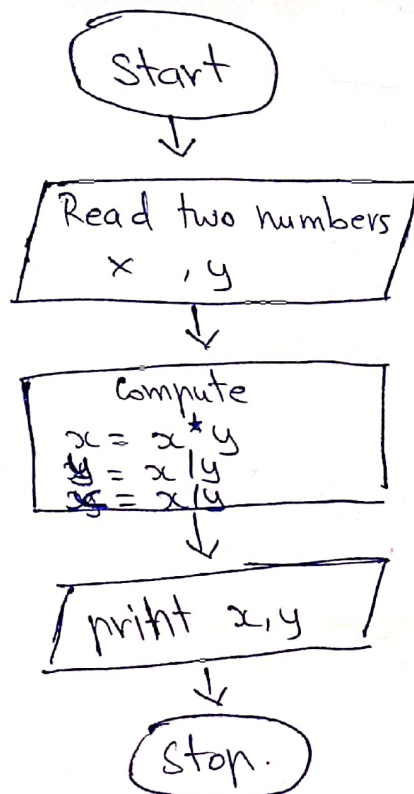 Start
Read two numbers
x , y
Compute
x = x * y
y = x / y
x = x / y
print x, y
Stop.